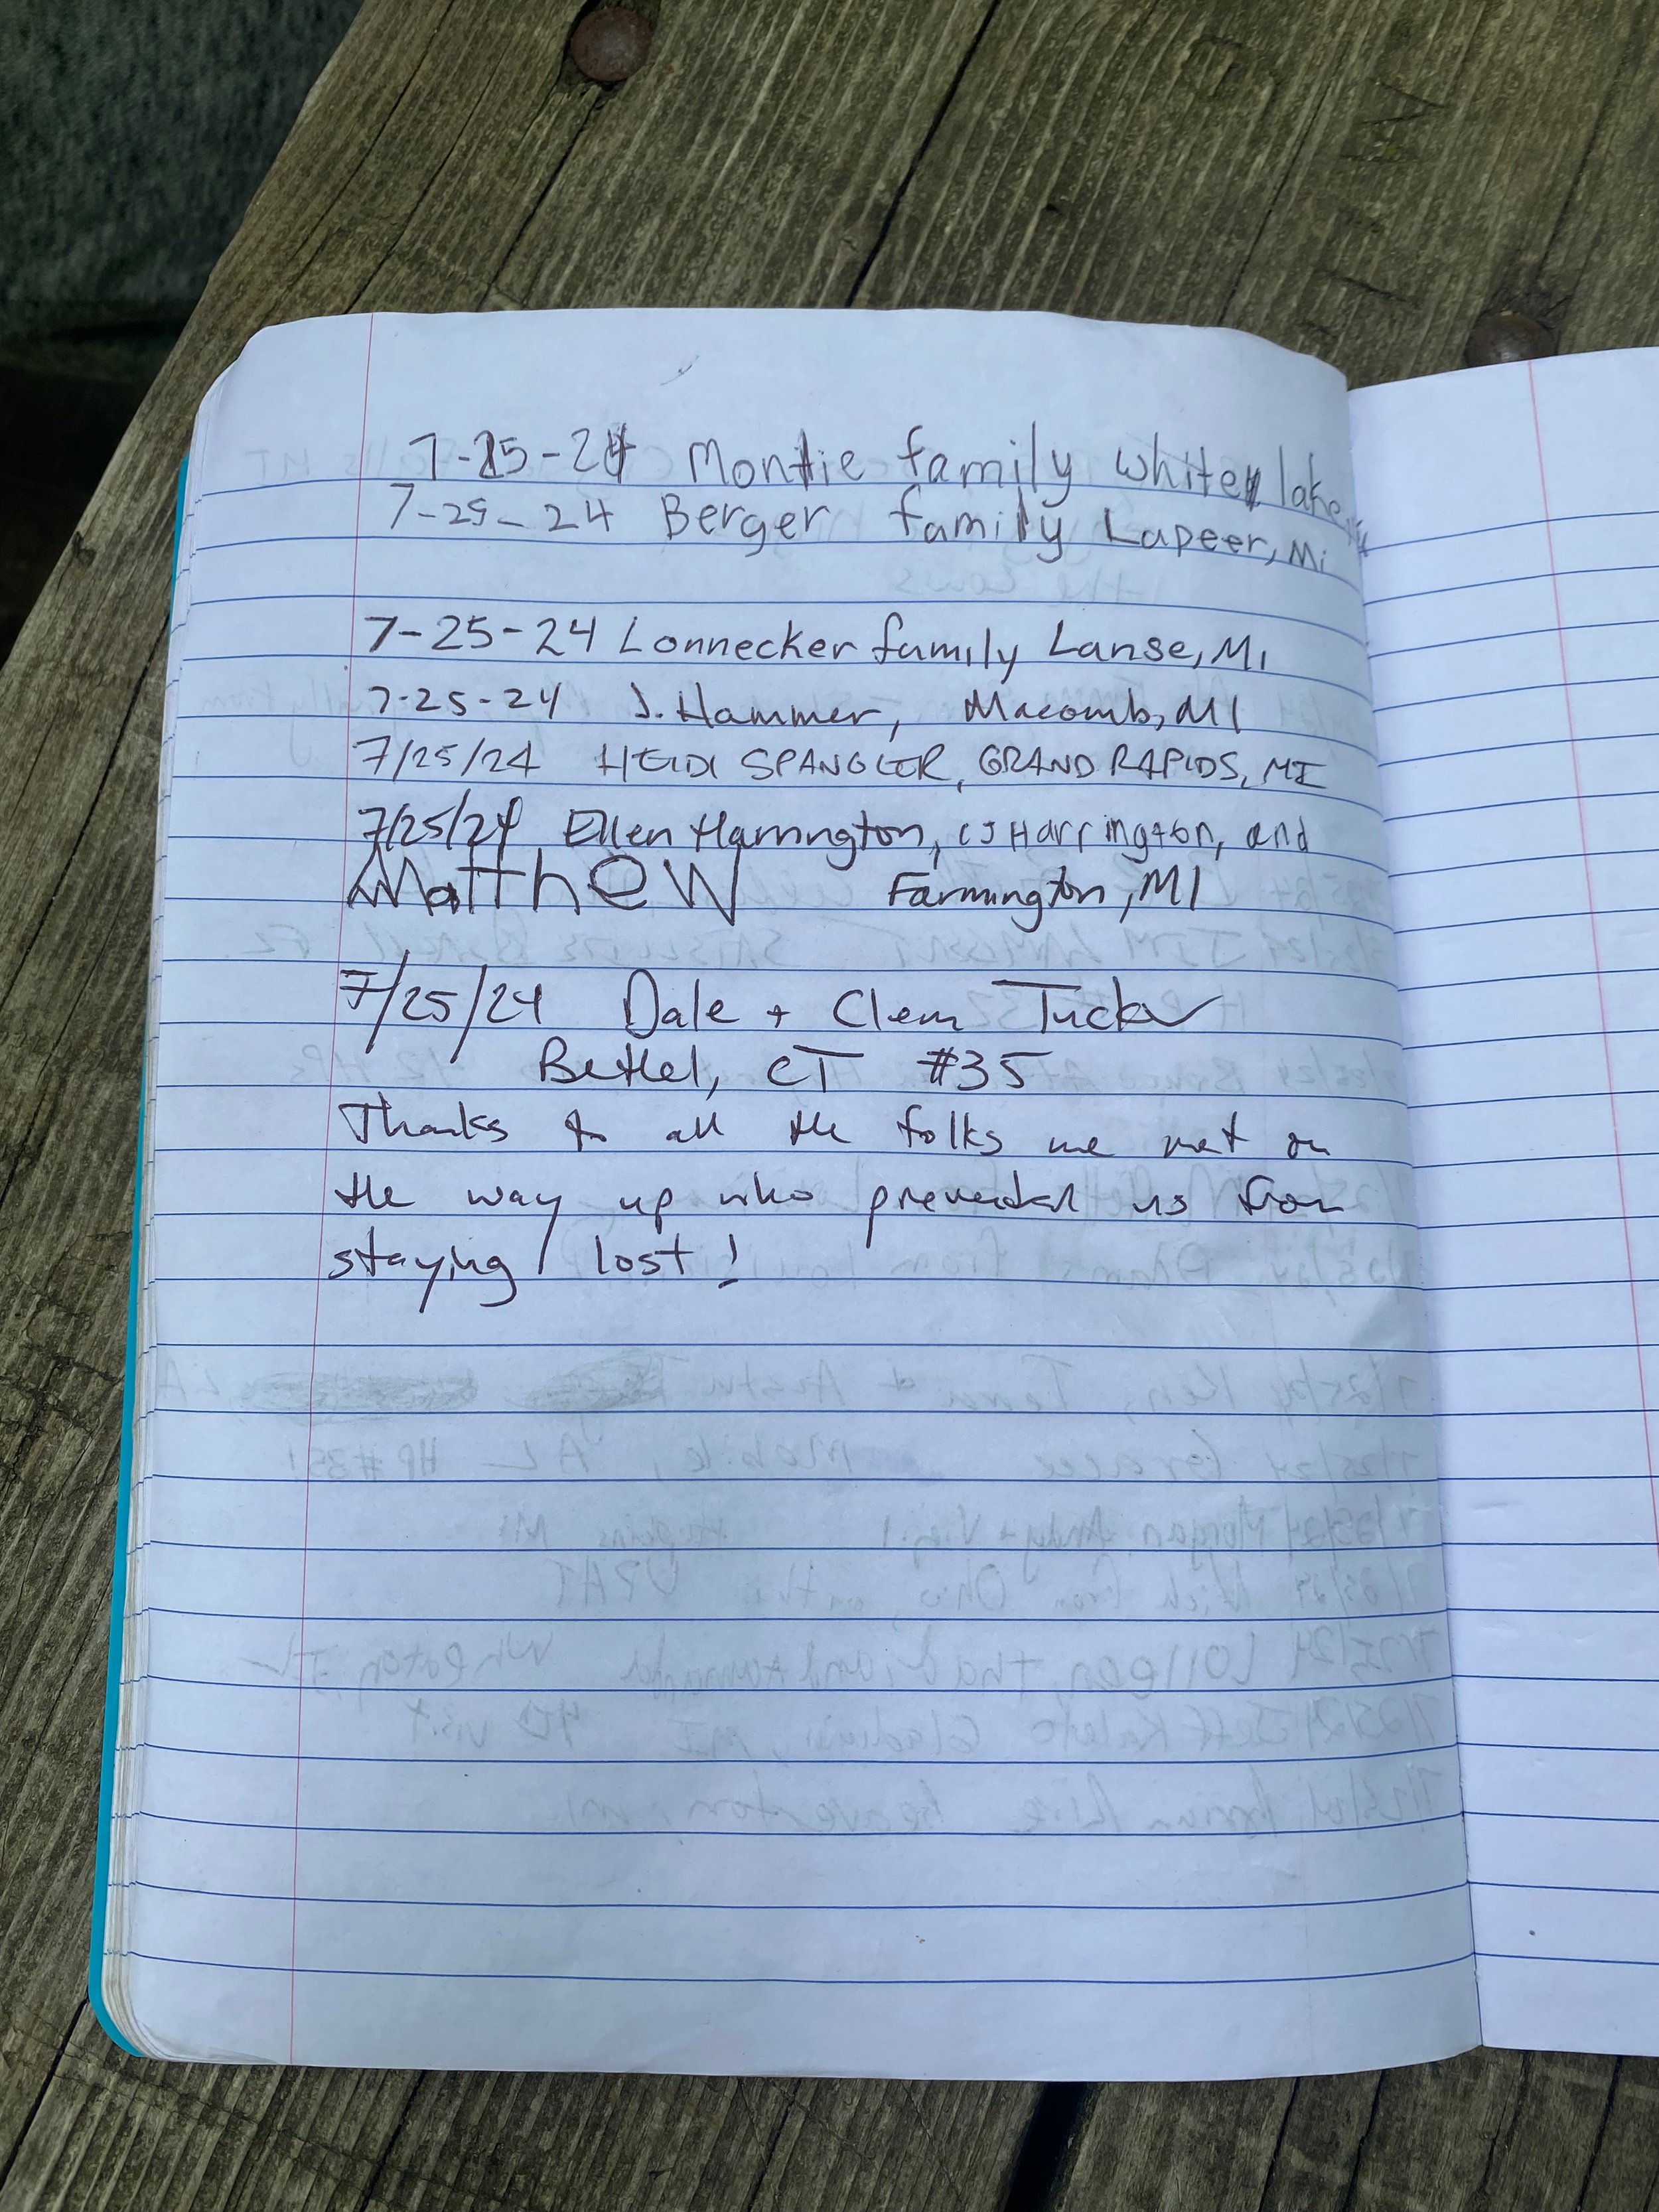 7-25-24 Montie family White lake
7-25-24 Berger family Lapeer, Mi
7-25-24 Lonnecker family Lanse, MI
7-25-24 J. Hammer, Macomb, MI
7/25/24 HEIDI SPANGLER, GRAND RAPIDS, MI
7/25/24 Ellen Harrington, CJ Harrington, and
Matthew Farmington, MI
7/25/24 Dale + Clem Tucker
Bethel, CT #35
Thanks to all the folks we met on
the way up who prevented us from
staying lost!